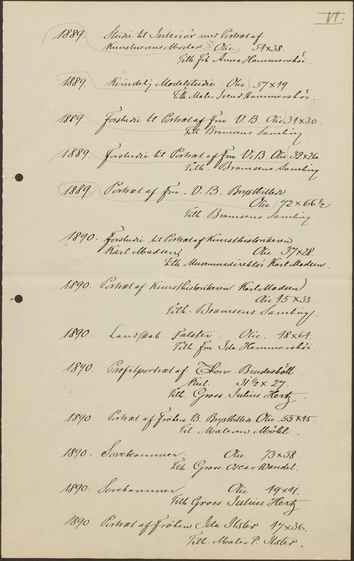 VI.
1889. Studie til Interiør med Portræt af
Kunstnerens Moder Olie 34x38.
Tilh. Frk. Anna Hammershøi.
1889. Kvindelig Modelstudie Olie 57x49
Tilh. Maler Svend Hammershøi.
1889. Forstudie til Portræt af Fru V. B. Olie 34x30
Tilh. Bramsens Samling
1889. Forstudie til Portræt af Frk V. B. Olie 32x26
Tilh. Bramsens Samling
1889. Portræt af Frk. V. B. Brystbillede
Olie 72x66½
Tilh. Bramsens Samling
1890. Forstudie til Portræt af Kunsthistorikeren
Karl Madsen Olie 37x28.
Tilh. Museumsdirektør Karl Madsen.
1890. Portræt af Kunsthistorikeren Karl Madsen
Olie 45x33
Tilh. Bramsens Samling.
1890. Landskab Falster. Olie. 48x64
Tilh. Fru Ida Hammershøi
1890. Profilportræt af Thorv. Bindesbøll
31½ x 27.
Tilh. Gross. Julius Hertz.
1890. Portræt af Frøken B. Brystbillede Olie 55x45
Til. Malerne
1890. Sovekammer. Olie 73x38
Tilh. Gross. Oscar Wandel.
1890. Sovekammer Olie 49x41.
Tilh. Gross. Julius Hertz
1890. Portræt af Frøken Ida Ilsted 47x36.
Tilh. Maler P. Ilsted.